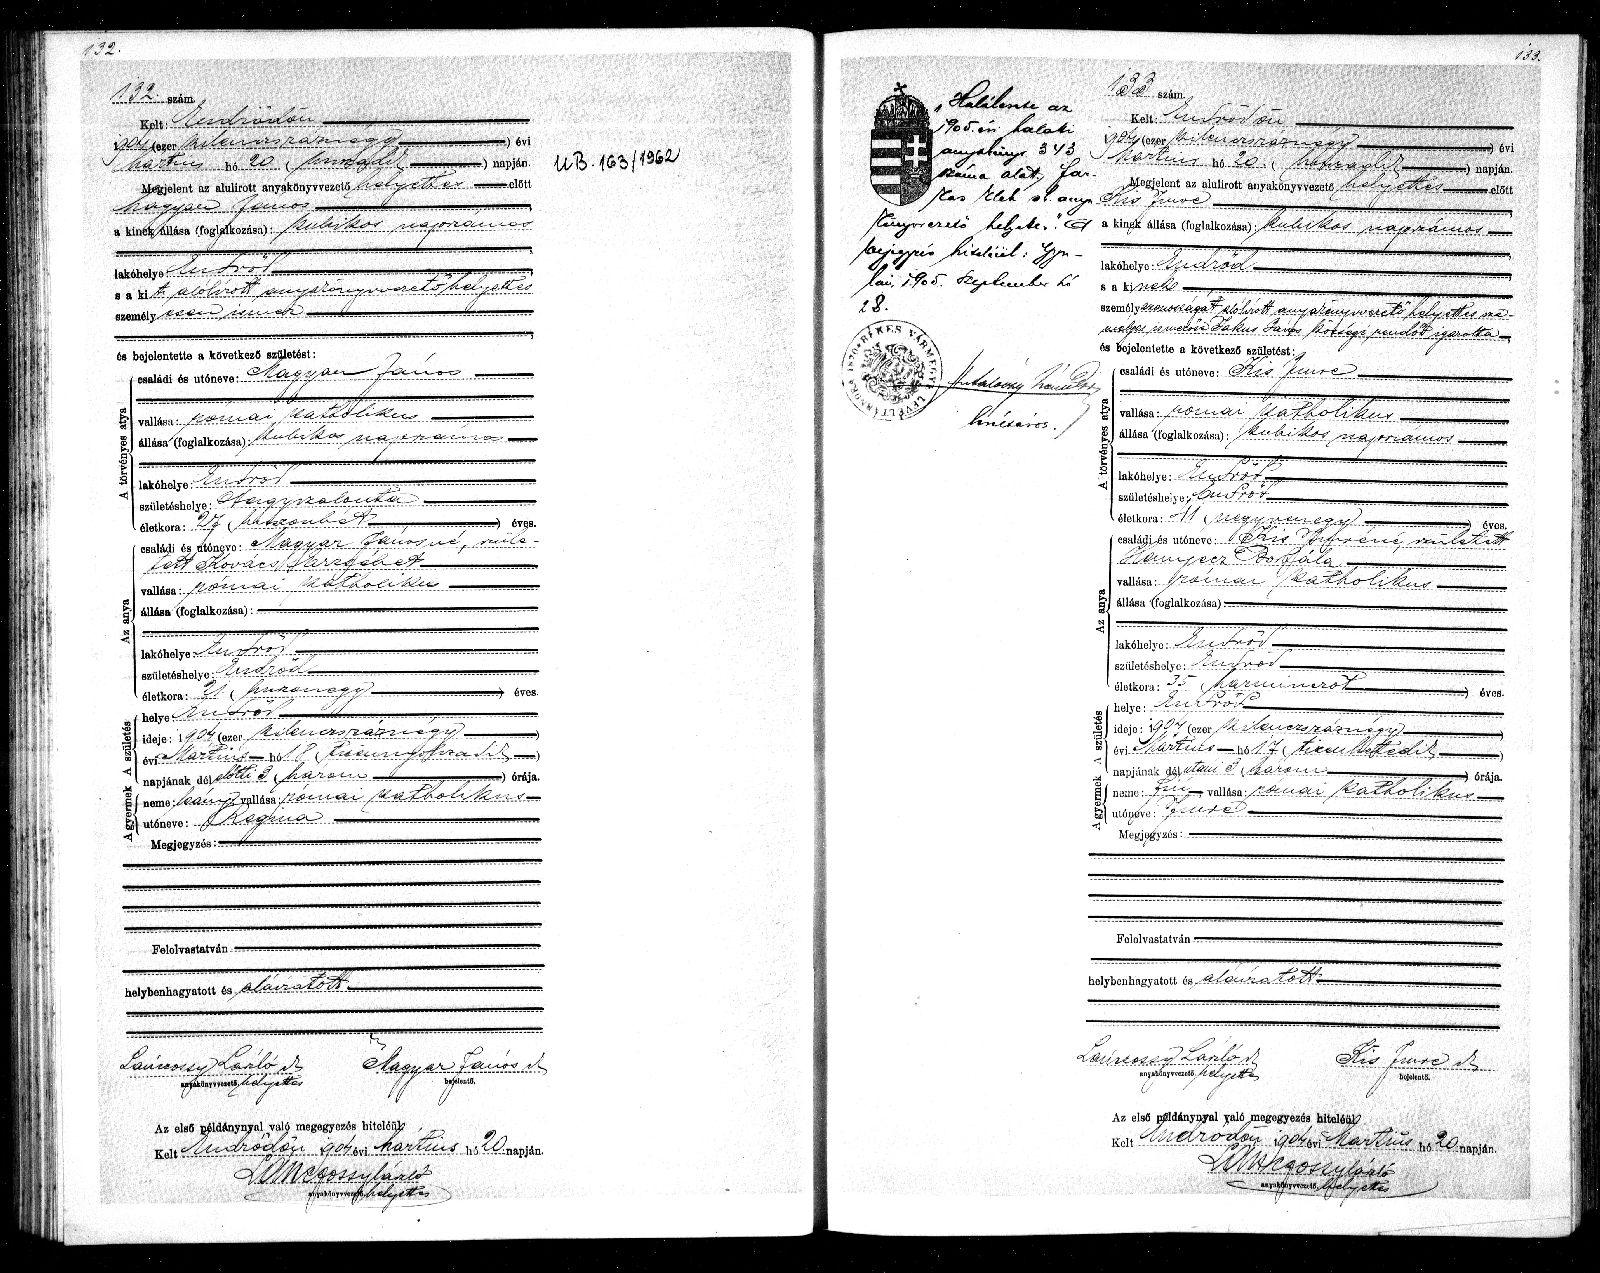 132.
132. szám
Kelt: Endrődön
1904 (ezer kilenczszáznégy) évi
Martius hó 20. (huszadik) napján.
Megjelent az alulirott anyakönyvvezető helyettes előtt
Magyar János
a kinek állása (foglalkozása): kubikos napszámos
lakóhelye Endrőd
s a kit alólirott anyakönyvvezető helyettes
személyesen ismer
és bejelentette a következő születést:
A törvényes atya
családi és utóneve: Magyar János
vallása: római katholikus
állása (foglalkozása): kubikos napszámos
lakóhelye: Endrőd
születéshelye: Nagyszalonta
életkora: 27 (huszonhét) éves.
Az anya
családi és utóneve: Magyar Jánosné, szüle-
tett Kovács Erzsébet
vallása: római katholikus
állása (foglalkozása):
lakóhelye: Endrőd
születéshelye: Endrőd
életkora: 21 (huszonegy) éves.
A gyermek A születés
helye: Endrőd
ideje: 1904 (ezer kilenczszáznégy)
évi Martius hó 18 (tizennyolczadik)
napjának dél előtti 3 (három) órája.
neme: leány vallása: római katholikus
utóneve: Regina
Megjegyzés:
Felolvastatván
helybenhagyatott és aláiratott
Lánczossy László sk Magyar János sk
anyakönyvvezető helyettes bejelentő.
Az első példánynyal való megegyezés hiteléül
Kelt Endrődön 1904 évi Martius hó 20 napján.
Lánczossy László
anyakönyvvezető helyettes
UB. 163/1962
133.
"Halálesete az
1905. évi halotti
anyakönyv 343
száma alatt, Far-
kas Elek sk. anya-
könyvvezető helyette." A
bejegyzés hiteléül: Gyu-
lán, 1905. Szeptember hó
28.
BÉKÉS VÁRMEGYE LEVÉLTÁRA
133 szám.
Kelt: Endrődön
1904 (ezer kilenczszáznégy) évi
Martius hó 20. (huszadik) napján.
Megjelent az alulirott anyakönyvvezető helyettes előtt
Kis Imre
a kinek állása (foglalkozása): kubikos napszámos
lakóhelye: Endrőd
s a kinek
személyazonosságát alólirott anyakönyvvezető helyettes sze-
mélyes ismerőse János községi rendőr igazolta
és bejelentette a következő születést:
A törvényes atya
családi és utóneve: Kis Imre
vallása: római katholikus
állása (foglalkozása): kubikos napszámos
lakóhelye: Endrőd
születéshelye: Endrőd
életkora: 41 (negyvenegy) éves.
Az anya
családi és utóneve: Kis Imréné, született
Hanyecz Borbála
vallása: római katholikus
állása (foglalkozása)
lakóhelye: Endrőd
születéshelye: Endrőd
életkora: 35 (harminczöt) éves.
A gyermek A születés
helye: Endrőd
ideje: 1904 (ezer kilenczszáznégy)
évi Martius hó 17 (tizenhetedik)
napjának dél utáni 3 (három) órája.
neme: fiu vallása: római katholikus
utóneve: Imre
Megjegyzés:
Felolvastatván
helybenhagyatott és aláiratott
Lánczossy László sk Kis Imre sk
anyakönyvvezető helyettes bejelentő.
Az első példánynyal való megegyezés hiteléül
Kelt Endrődön 1904 évi Martius hó 20 napján.
Lánczossy László
anyakönyvvezető helyettes